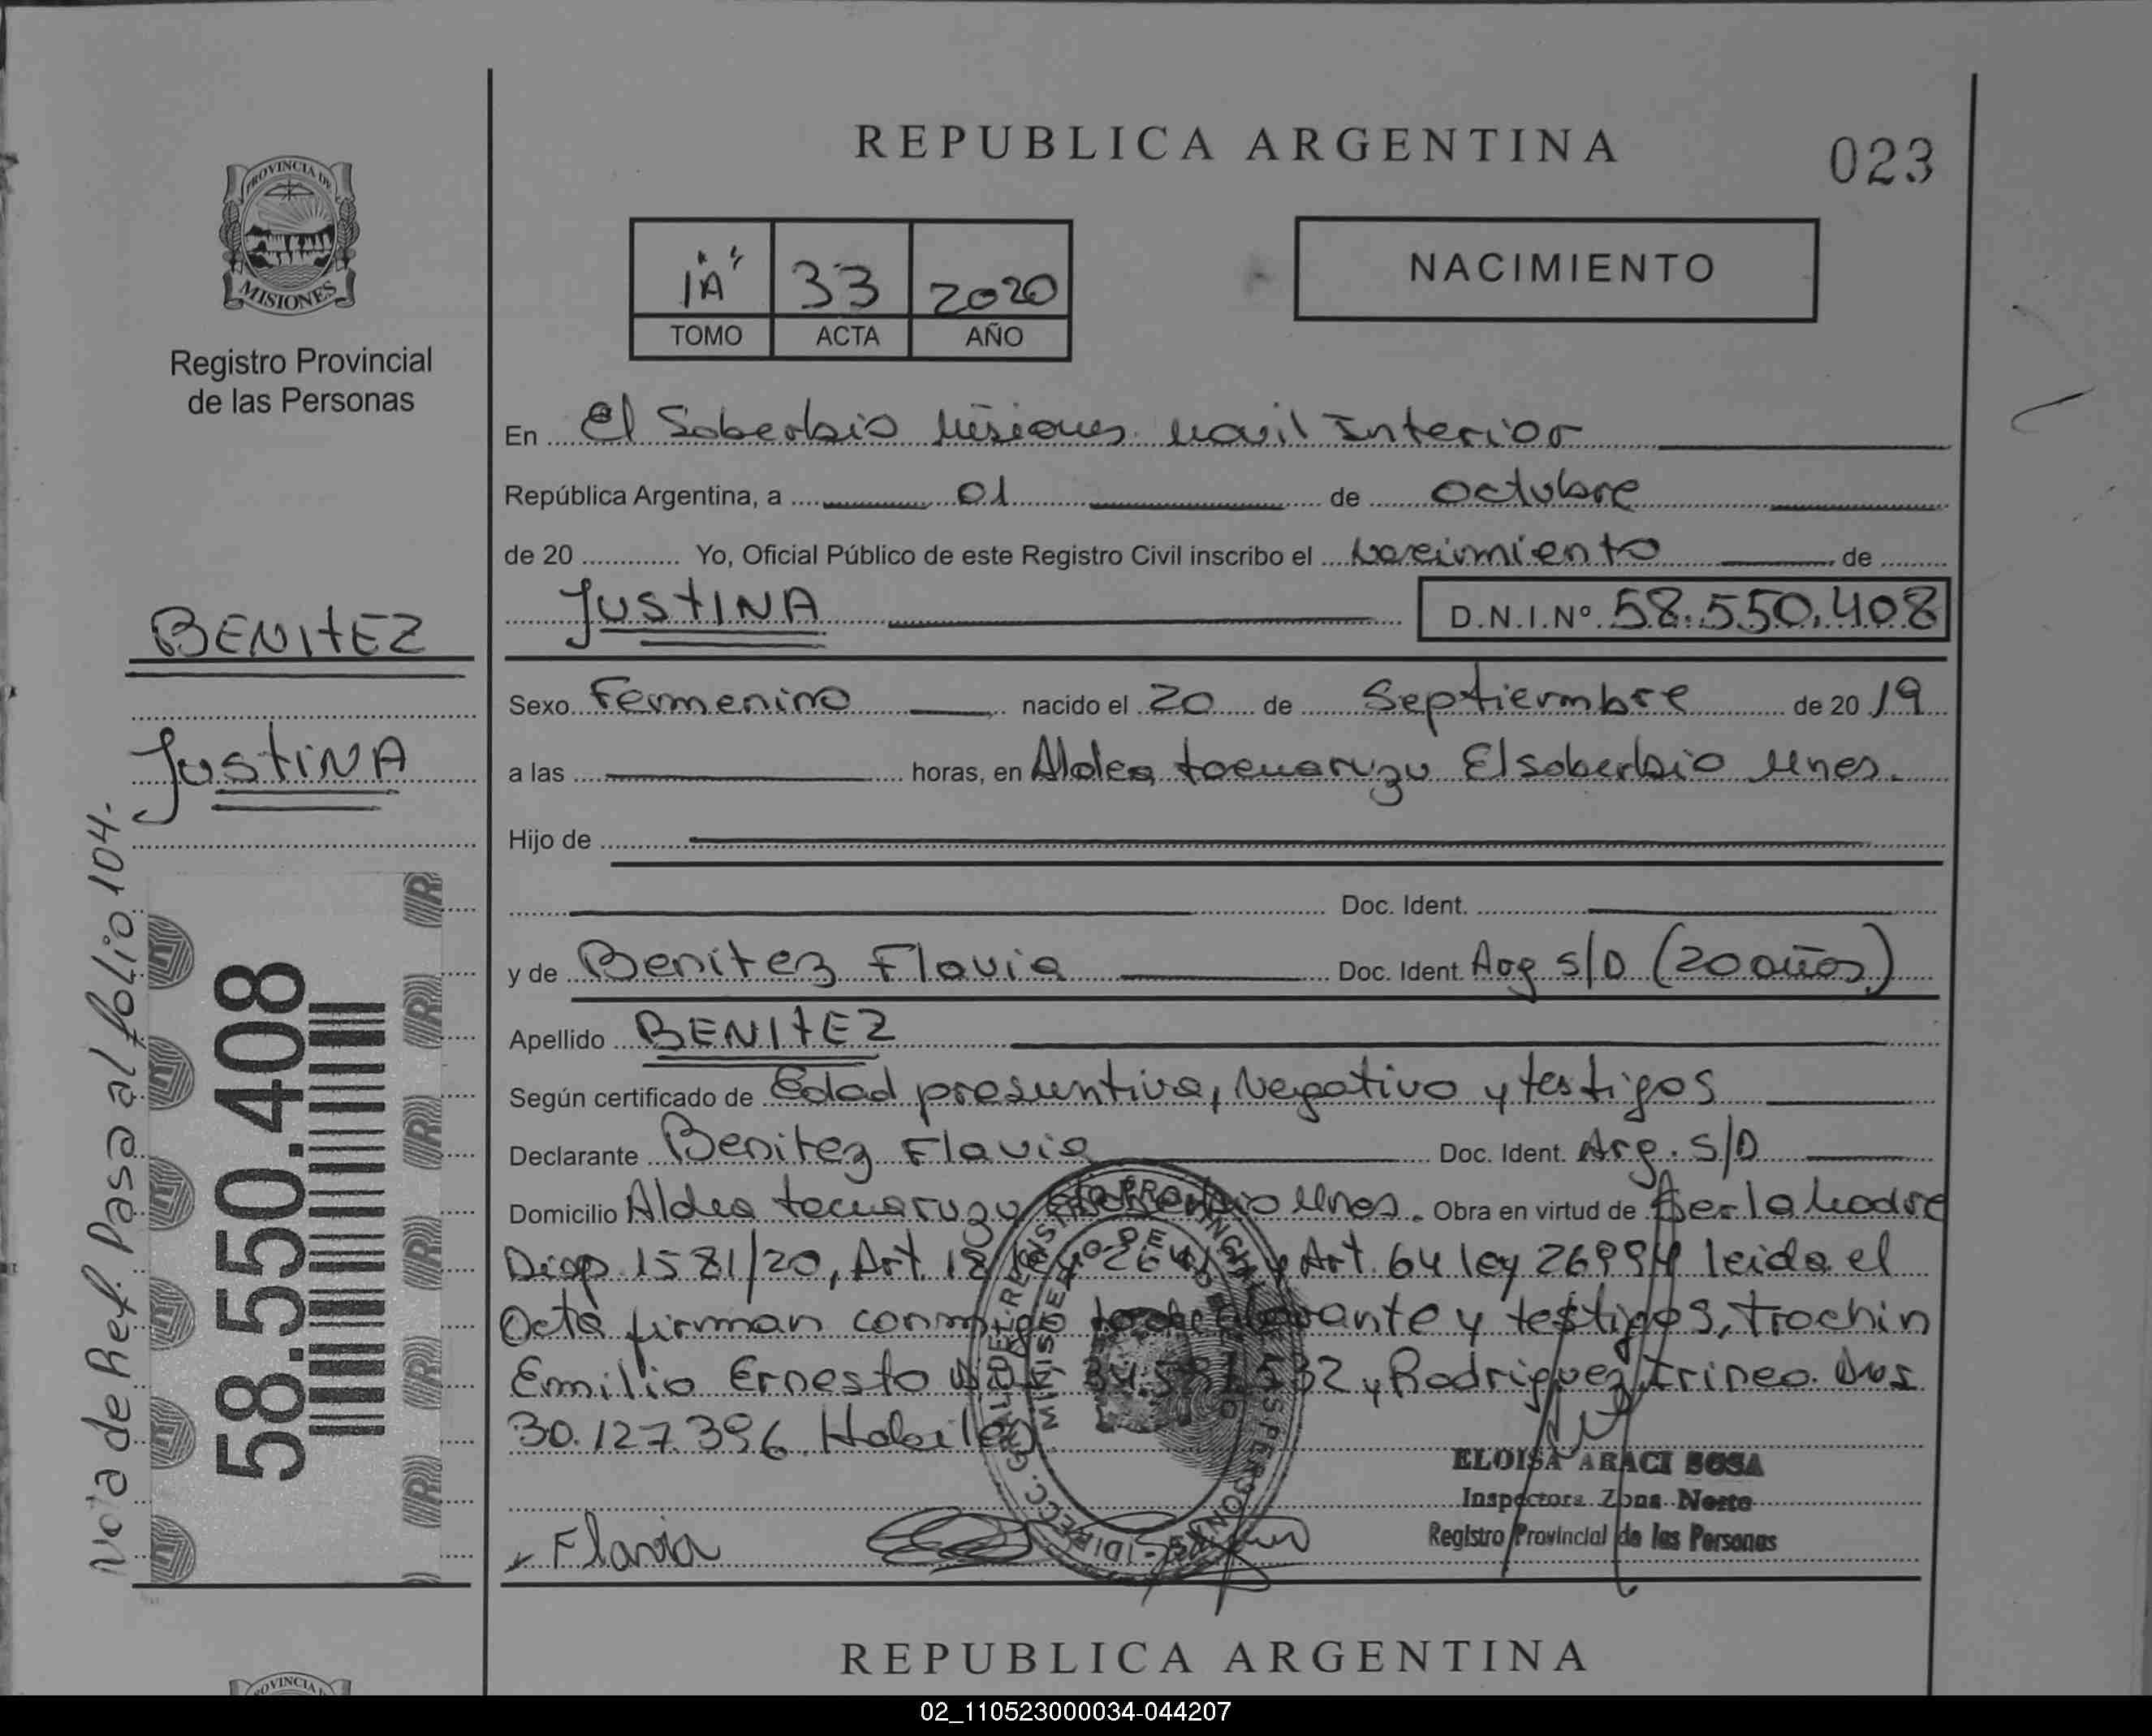 REPUBLICA ARGENTINA
023
PROVINCIA DE
MISIONES
Registro Provincial
de las Personas
1"A" 33 2020
TOMO ACTA AÑO
NACIMIENTO
En El Soberbio Misiones Movil Interior
República Argentina, a 01 de octubre
de 20 Yo, Oficial Público de este Registro Civil inscribo el Nacimiento de
JUSTINA D.N.I.Nº 58.550.408
BENITEZ
JUSTINA
Sexo Femenino nacido el 20 de Septiembre de 20 19
a las horas, en Aldea El soberbio Mnes.
Hijo de
Doc. Ident.
y de Benitez Flavia Doc. Ident. Arg S/D (20 años)
Apellido BENITEZ
Según certificado de Edad presuntiva, Negativo y testigos
Declarante Benitez Flavia Doc. Ident. Arg. S/D
Domicilio Aldea Mnes. Obra en virtud de Ser la Madre
Disp 1581/20, Art 18 Ley y Art. 64 ley 26994 leida el
Acta firman conmigo y testigos, trochin
Emilio Ernesto y Rodriguez Irineo
30.127.396 Habiles
Flavia
ELOISA ARACI SOSA
Inspectora Zona Norte
Registro Provincial de las Personas
Nota de Ref. Pasa al folio 104.-
58.550.408
REPUBLICA ARGENTINA
02_110523000034-044207